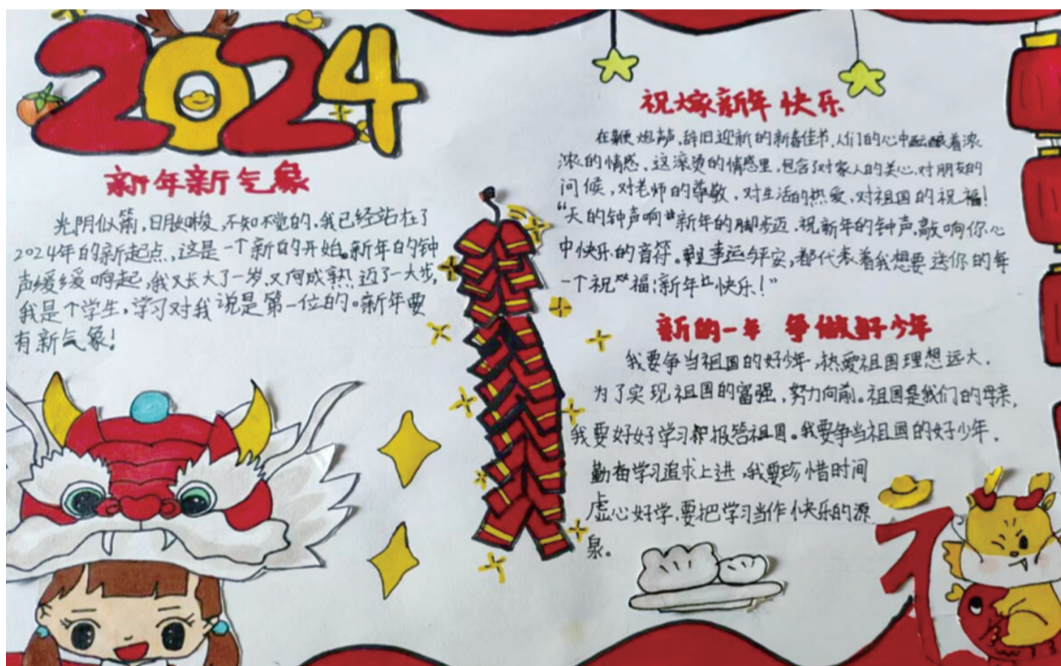 2024
新年新气象
光阴似箭,日月如梭,不知不觉的,我已经站在了
2024年的新起点,这是一个新的开始。新年的钟
声缓缓响起,我又长大了一岁,又向成熟迈了一大步,
我是个学生,学习对我说是第一位的。新年要
有新气象!
祝大家新年快乐
在鞭炮声,辞旧迎新的新春佳节,人们的心中酝酿着浓
浓的情感,这滚烫的情感里,包含了对家人的关心,对朋友的
问候,对老师的尊敬,对生活的热爱,对祖国的祝福!
“天的钟声响”新年的脚步迈,祝新年的钟声,敲响你心
中快乐的音符。幸运与平安,都代表着我想要送你的每
一个祝福!新年快乐!”
新的一年 争做好少年
我要争当祖国的好少年,热爱祖国理想远大,
为了实现祖国的富强,努力向前。祖国是我们的母亲,
我要好好学习和报答祖国。我要争当祖国的好少年,
勤奋学习追求上进,我要珍惜时间
虚心好学,要把学习当作快乐的源
泉。